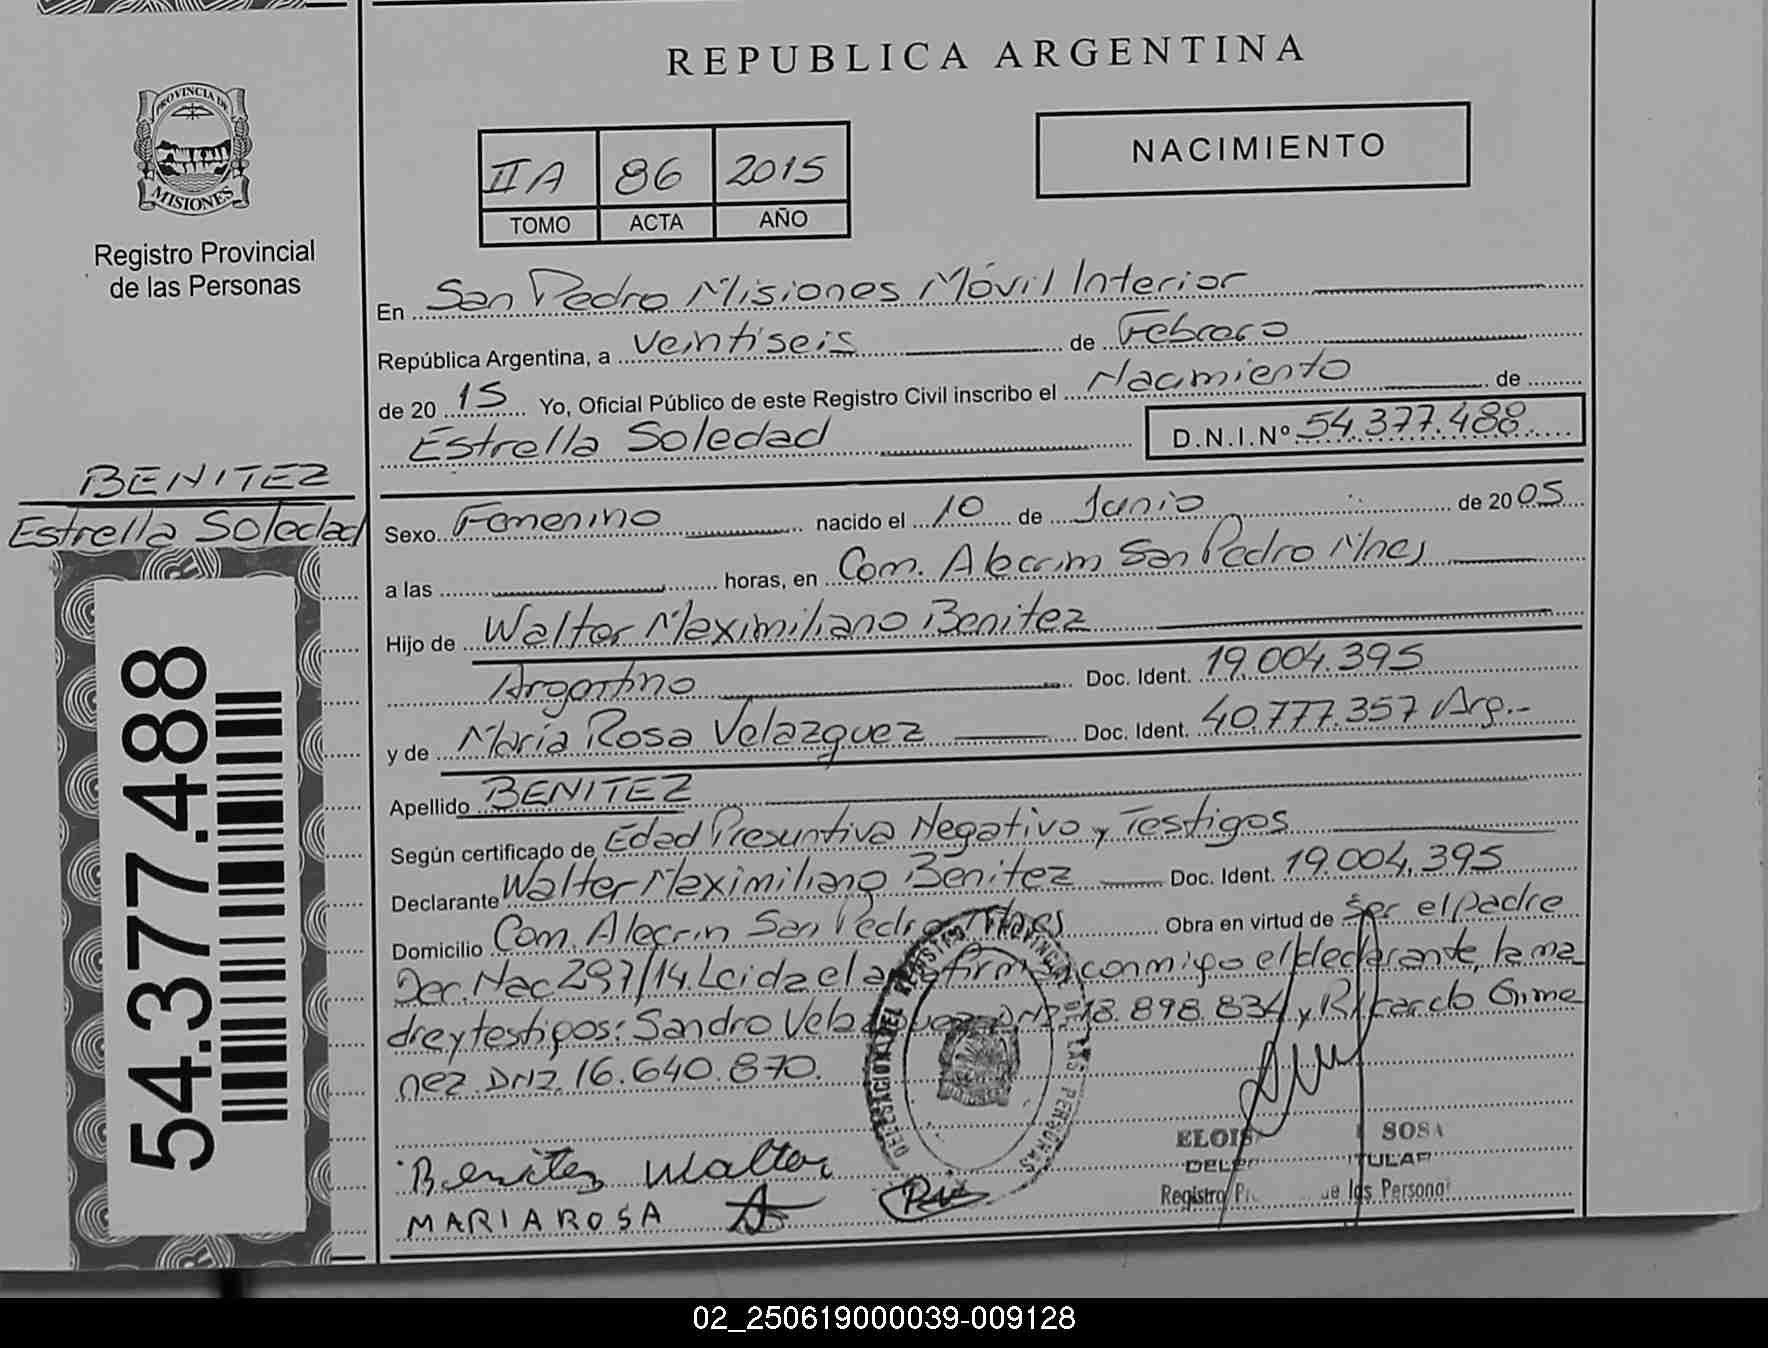 REPUBLICA ARGENTINA
PROVINCIA DE
MISIONES
Registro Provincial
de las Personas
II A 86 2015
TOMO ACTA AÑO
NACIMIENTO
En San Pedro Misiones Móvil Interior
República Argentina, a veintiseis de Febrero
de 20 15 Yo, Oficial Público de este Registro Civil inscribo el Nacimiento de
Estrella Soledad D.N.I.Nº 54.377.488
BENITEZ
Estrella Soledad
54.377.488
Sexo Femenino nacido el 10 de Junio de 20 05
a las horas, en Com. Alecrim San Pedro Mnes
Hijo de Walter Maximiliano Benitez
Argentino Doc. Ident. 19.004.395
y de María Rosa Velazquez Doc. Ident. 40.777.357 Arg.-
Apellido BENITEZ
Según certificado de Edad Presuntiva Negativo y Testigos
Declarante Walter Maximiliano Benitez Doc. Ident. 19.004.395
Domicilio Com. Alecrin San Pedro Mnes Obra en virtud de Ser el padre
Dec. Nac 297/14. Leida el acta firman conmigo el declarante, la ma
dre y testigos: Sandro Velazquez DNI 18.898.834 y Ricardo Gime
nez. DNI. 16.640.870.
DELEGACION DEL REGISTRO PROVINCIAL DE LAS PERSONAS
Benites Walter
MARIA ROSA
SOSA
Registro de las Personas
02_250619000039-009128